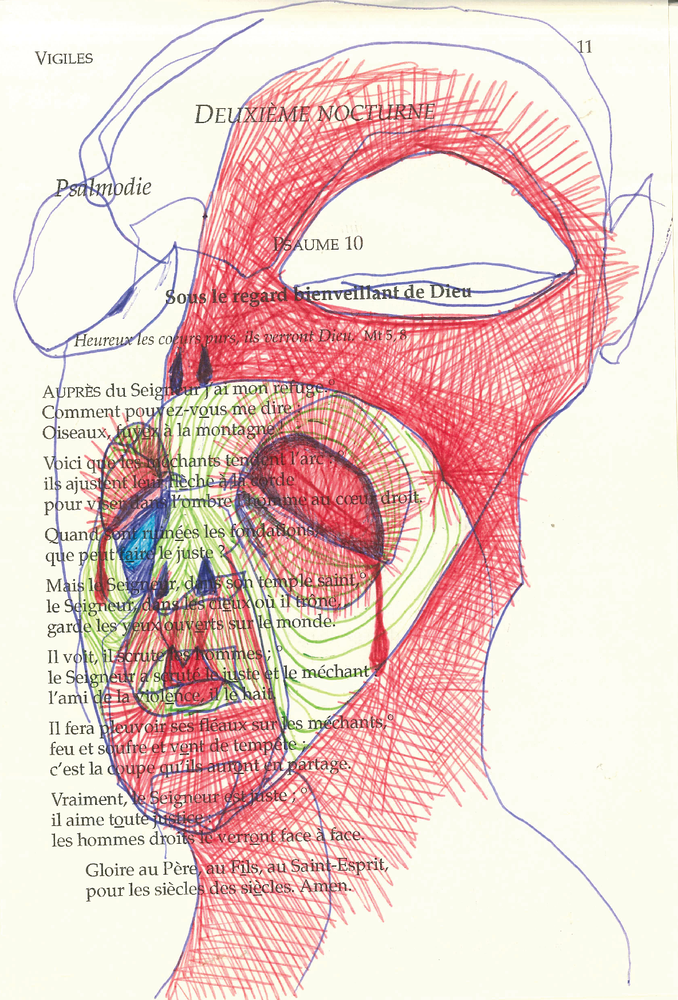 VIGILES
11
DEUXIÈME NOCTURNE
Psalmodie
PSAUME 10
Sous le regard bienveillant de Dieu
Heureux les cœurs purs, ils verront Dieu. Mt 5, 8
AUPRÈS du Seigneur j'ai mon refuge.
Comment pouvez-vous me dire :
Oiseaux, fuyez à la montagne !
Voici que les méchants tendent l'arc :
ils ajustent leur flèche à la corde
pour viser dans l'ombre l'homme au cœur droit.
Quand sont ruinées les fondations,
que peut faire le juste ?
Mais le Seigneur, dans son temple saint,°
le Seigneur, dans les cieux où il trône,
garde les yeux ouverts sur le monde.
Il voit, il scrute les hommes ; °
le Seigneur a scruté le juste et le méchant :
l'ami de la violence, il le hait.
Il fera pleuvoir ses fléaux sur les méchants,°
feu et soufre et vent de tempête :
c'est la coupe qu'ils auront en partage.
Vraiment, le Seigneur est juste ; °
il aime toute justice :
les hommes droits le verront face à face.
Gloire au Père, au Fils, au Saint-Esprit,
pour les siècles des siècles. Amen.